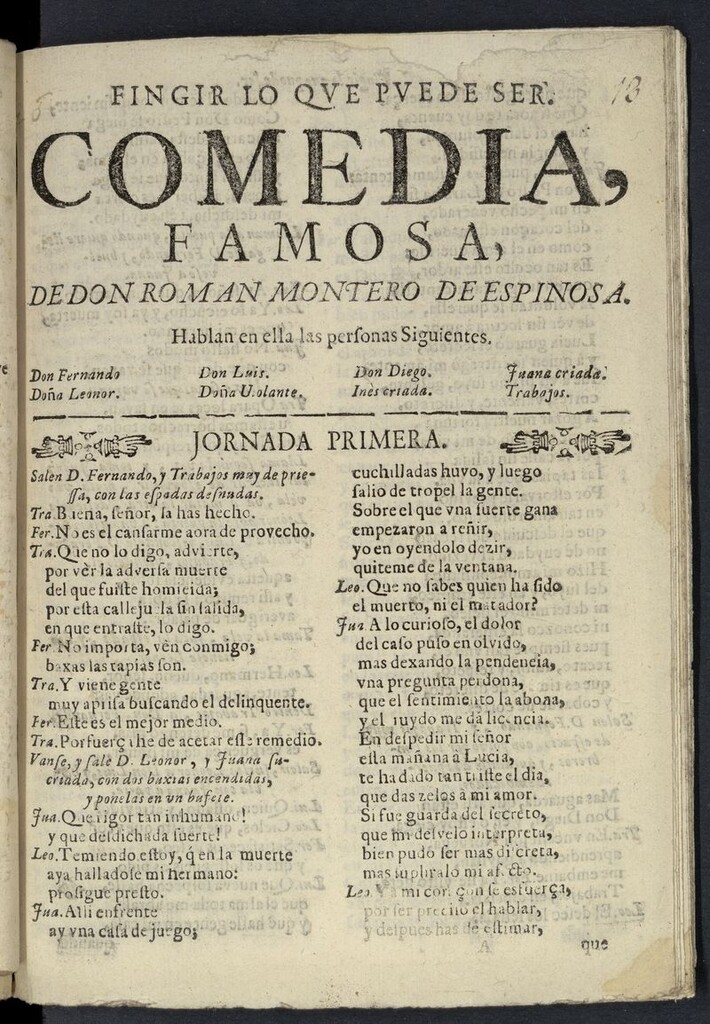 FINGIR LO QVE PVEDE SER.
13
COMEDIA,
FAMOSA,
DE DON ROMAN MONTERO DE ESPINOSA.
Hablan en ella las perſonas Siguientes.
Don Fernando Don Luis. Don Diego. Juana criada.
Doña Leonor. Doña Uiolante. Inès criada. Trabajos.
JORNADA PRIMERA.
Salen D. Fernando, y Trabajos muy de prie-
ſſa, con las eſpadas deſnudas.
Tra. Buena, ſeñor, la has hecho.
Fer. No es el canſarme aora de provecho.
Tra. Que no lo digo, advierte,
por vèr la adverſa muerte
del que fuiſte homicida;
por eſta calleju la ſin ſalida,
en que entraſte, lo digo.
Fer. No importa, vèn conmigo;
baxas las tapias ſon.
Tra. Y viene gente
muy apriſa buſcando el delinquente.
Fer. Eſte es el mejor medio.
Tra. Por fuerç i he de acetar eſſe remedio.
Vanſe, y ſale D. Leonor, y Juana ſu-
criada, con dos buxias encendidas,
y ponelas en vn bufete.
Jua. Que rigor tan inhumano!
y que deſdichada ſuerte!
Leo. Temiendo eſtoy, q̃ en la muerte
aya halladoſe mi hermano:
proſigue preſto.
Jua. Alli enfrente
ay vna caſa de juego;
cuchilladas huvo, y luego
ſalio de tropel la gente.
Sobre el que vna ſuerte gana
empezaron a reñir,
yo en oyendolo dezir,
quiteme de la ventana.
Leo. Que no ſabes quien ha ſido
el muerto, ni el matador?
Jua A lo curioſo, el dolor
del caſo puſo en olvido,
mas dexando la pendencia,
vna pregunta perdona,
que el ſentimiento la abona,
y el ruydo me dà licencia.
En deſpedir mi ſeñor
eſta mañana à Lucia,
te ha dado tan triſte el dia,
que das zelos à mi amor.
Si fue guarda del ſecreto,
que mi deſvelo interpreta,
bien pudo ſer mas diſcreta,
mas ſupliralo mi afecto.
Leo. mi coraçon ſe esfuerça,
por ser preciſo el hablar,
y deſpues has de eſtimar,
A que